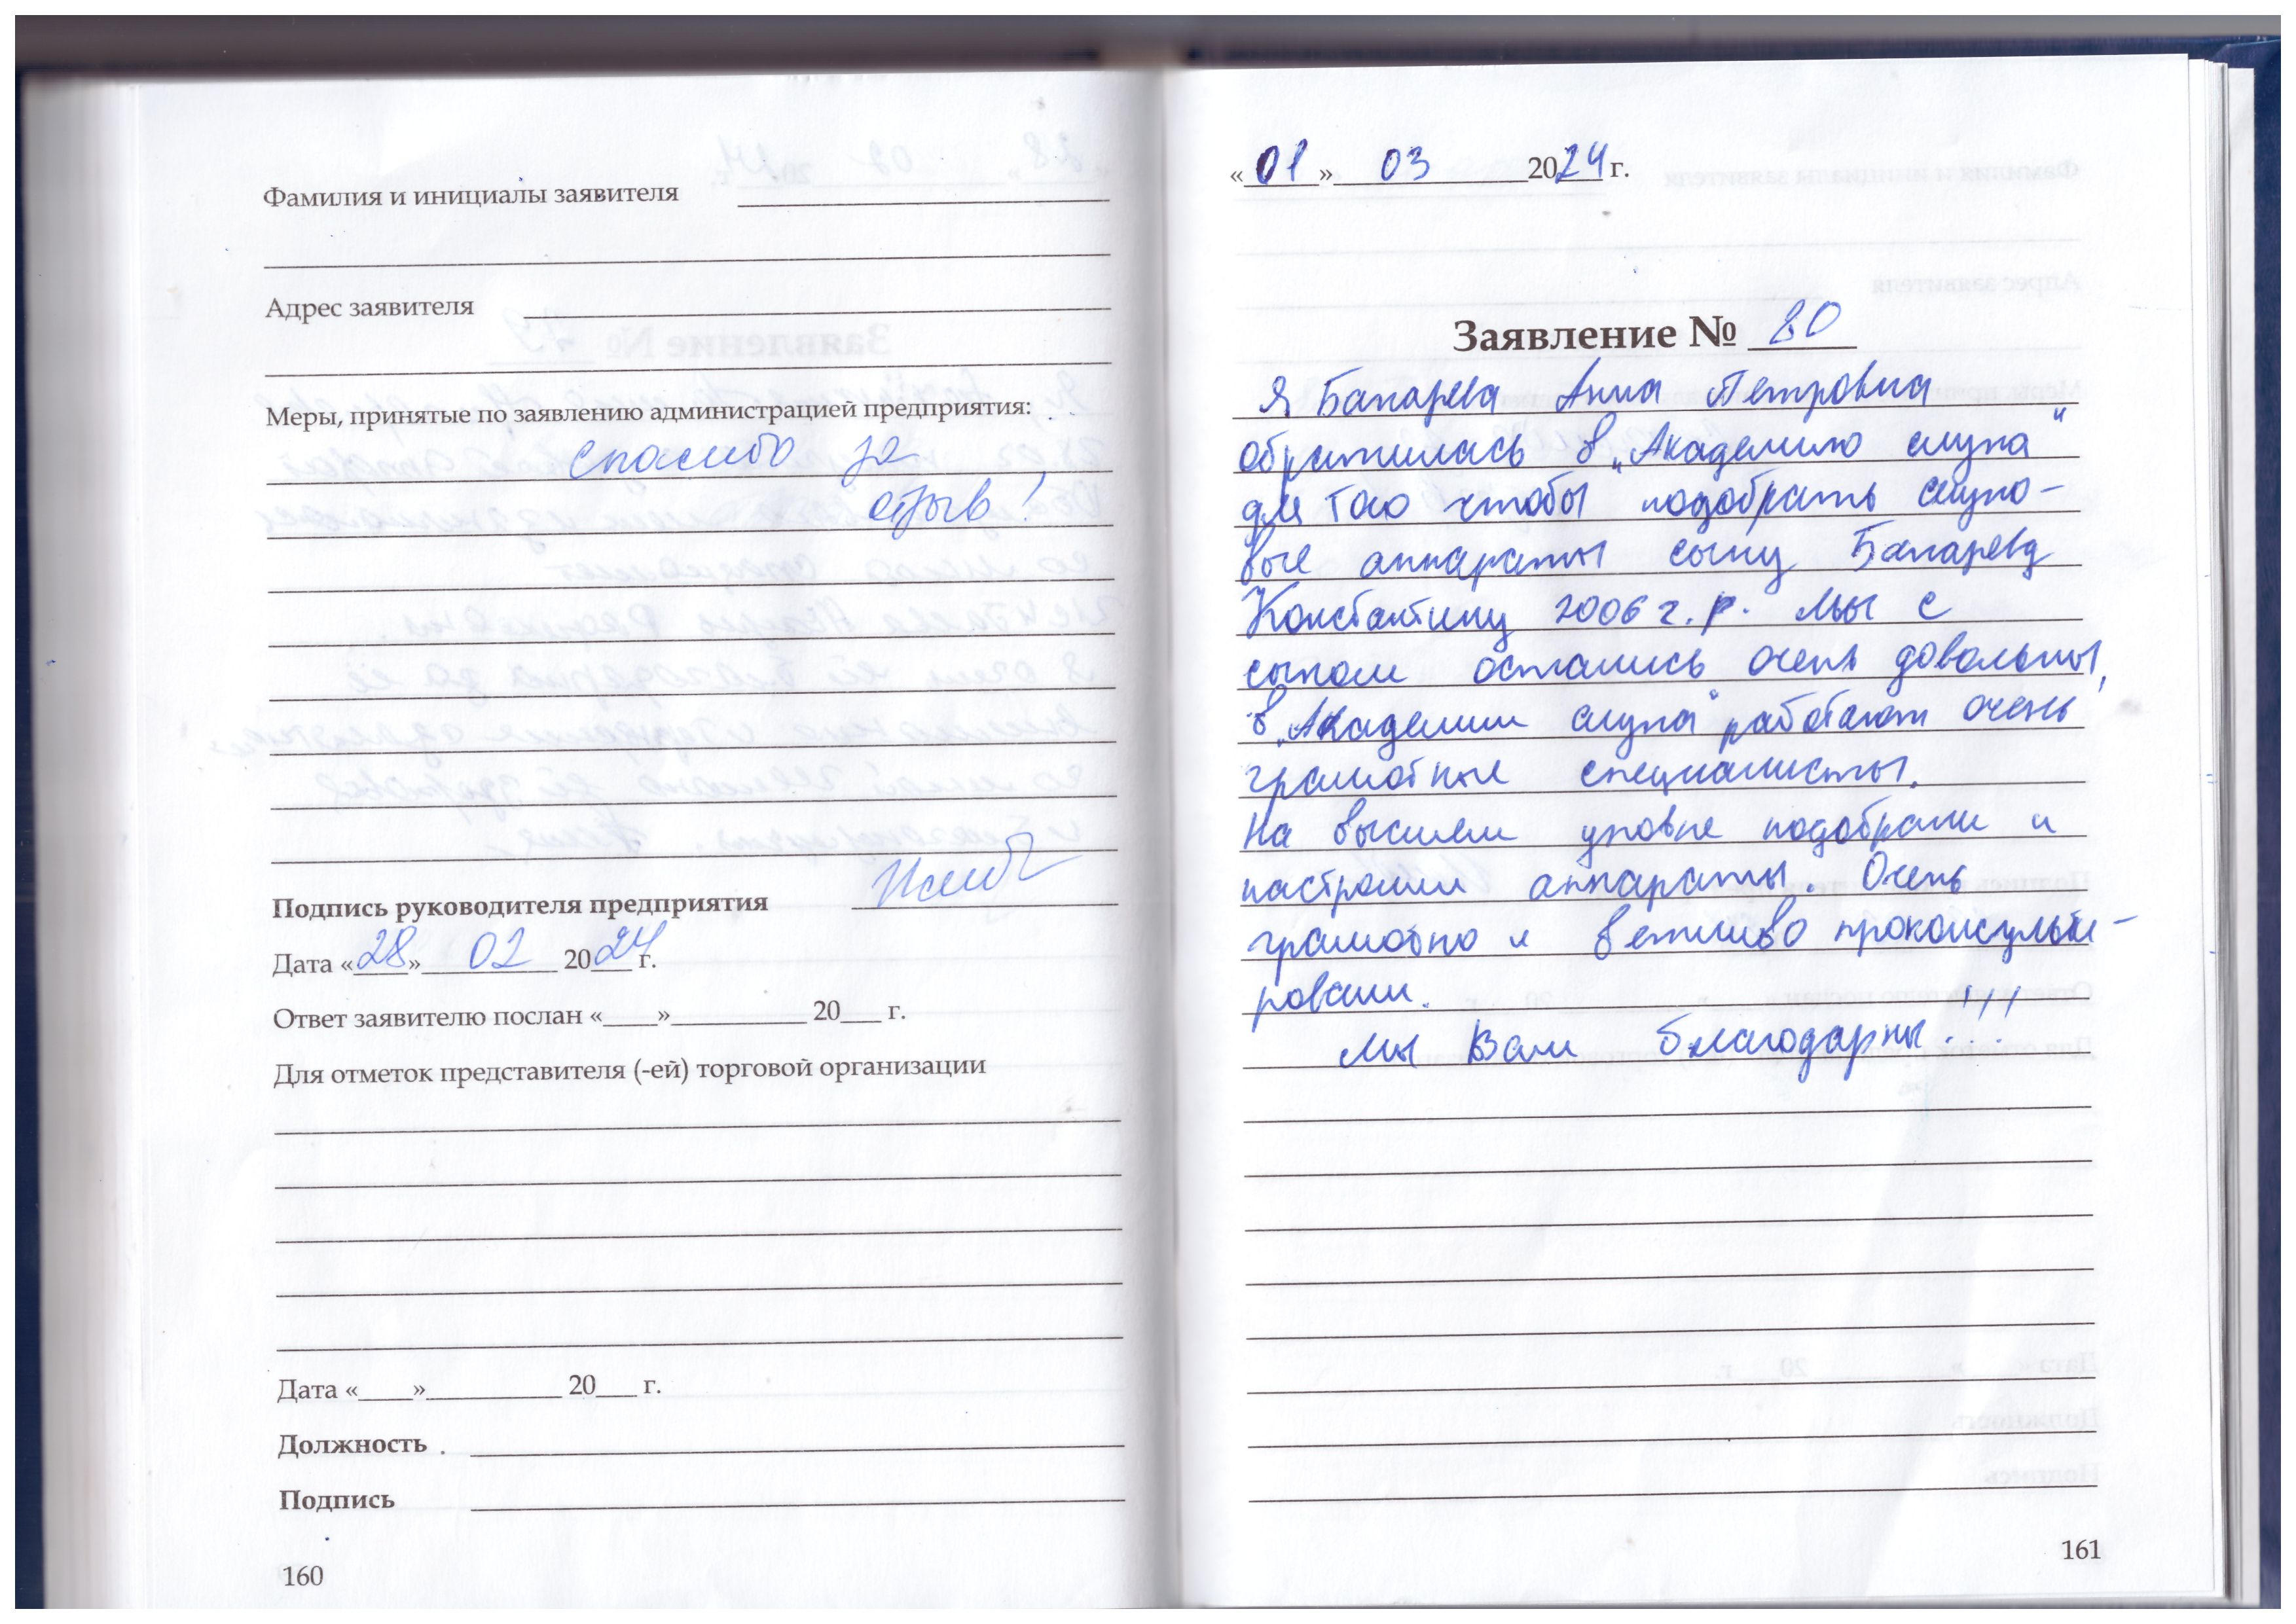 Фамилия и инициалы заявителя
Адрес заявителя
Меры, принятые по заявлению администрацией предприятия:
спасибо за
отзыв!
Подпись руководителя предприятия
Дата «28» 02 2024 г.
Ответ заявителю послан «____»__________ 20___ г.
Для отметок представителя (-ей) торговой организации
Дата «____»__________ 20___ г.
Должность
Подпись
160
«01» 03 2024 г.
Заявление № 80
Я, Бахарева Анна Петровна
обратилась в „Академию слуха"
для того чтобы подобрать слухо-
вые аппараты сыну Бахареву
Константину 2006 г.р. Мы с
сыном остались очень довольны,
в „Академии слуха" работают очень
грамотные специалисты.
На высшем уровне подобрали и
настроили аппараты. Очень
грамотно и вежливо проконсульти-
ровали.
Мы Вам благодарны!!!
161